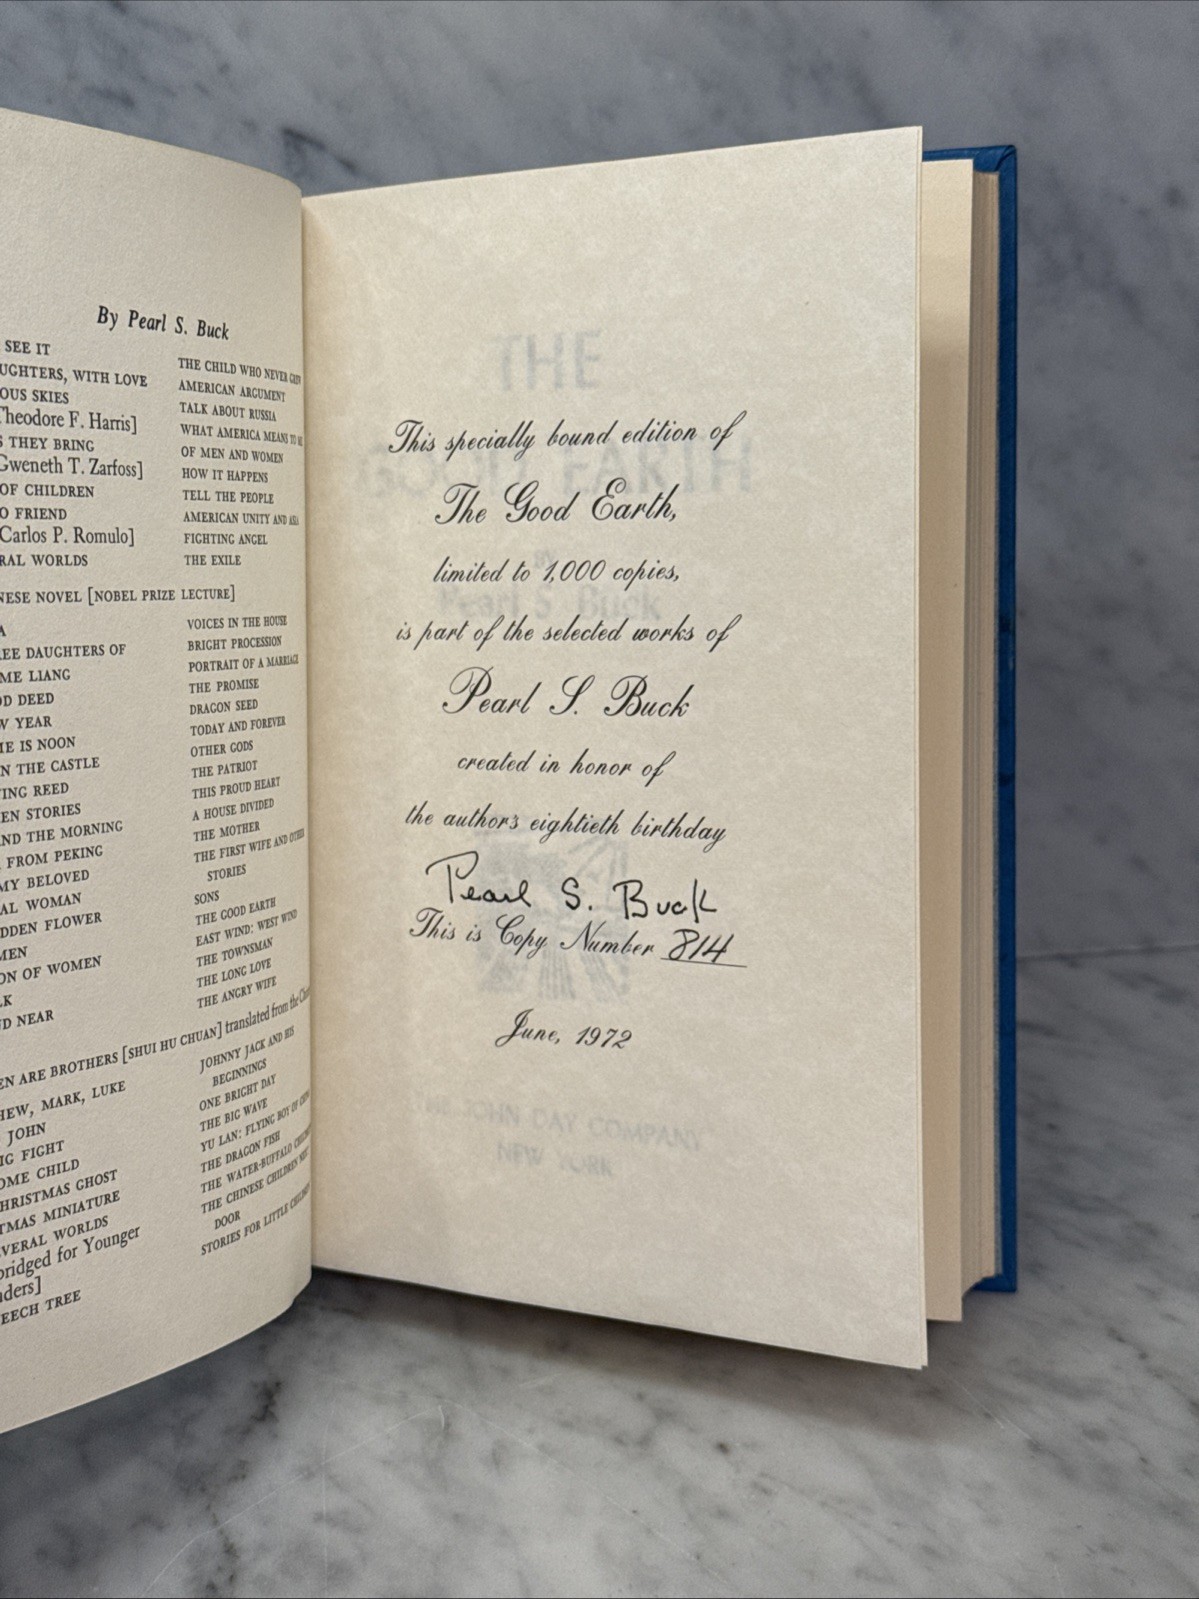 By Pearl S. Buck
SEE IT
UGHTERS, WITH LOVE
OUS SKIES
Theodore F. Harris]
S THEY BRING
Gweneth T. Zarfoss]
OF CHILDREN
O FRIEND
Carlos P. Romulo]
RAL WORLDS
THE CHILD WHO NEVER GREW
AMERICAN ARGUMENT
TALK ABOUT RUSSIA
WHAT AMERICA MEANS TO
OF MEN AND WOMEN
HOW IT HAPPENS
TELL THE PEOPLE
AMERICAN UNITY AND ASIA
FIGHTING ANGEL
THE EXILE
NESE NOVEL [NOBEL PRIZE LECTURE]
A
EE DAUGHTERS OF
ME LIANG
OD DEED
W YEAR
ME IS NOON
N THE CASTLE
ING REED
EN STORIES
ND THE MORNING
FROM PEKING
MY BELOVED
AL WOMAN
DDEN FLOWER
MEN
ON OF WOMEN
LK
D NEAR
VOICES IN THE HOUSE
BRIGHT PROCESSION
PORTRAIT OF A MARRIAGE
THE PROMISE
DRAGON SEED
TODAY AND FOREVER
OTHER GODS
THE PATRIOT
THIS PROUD HEART
A HOUSE DIVIDED
THE MOTHER
THE FIRST WIFE AND OTHER
STORIES
SONS
THE GOOD EARTH
EAST WIND: WEST WIND
THE TOWNSMAN
THE LONG LOVE
THE ANGRY WIFE
EN ARE BROTHERS [SHUI HU CHUAN] translated from the
HEW, MARK, LUKE
JOHN
IG FIGHT
OME CHILD
HRISTMAS GHOST
TMAS MINIATURE
VERAL WORLDS
bridged for Younger
ders]
EECH TREE
JOHNNY JACK AND HIS
BEGINNINGS
ONE BRIGHT DAY
THE BIG WAVE
YU LAN: FLYING BOY OF CHINA
THE DRAGON FISH
THE WATER-BUFFALO CHILDREN
THE CHINESE CHILDREN NEXT
DOOR
STORIES FOR LITTLE CHILDREN
This specially bound edition of
The Good Earth,
limited to 1,000 copies,
is part of the selected works of
Pearl S. Buck
created in honor of
the author's eightieth birthday
Pearl S. Buck
This is Copy Number 814
June, 1972
THE
GOOD EARTH
BY
Pearl S. Buck
THE JOHN DAY COMPANY
NEW YORK